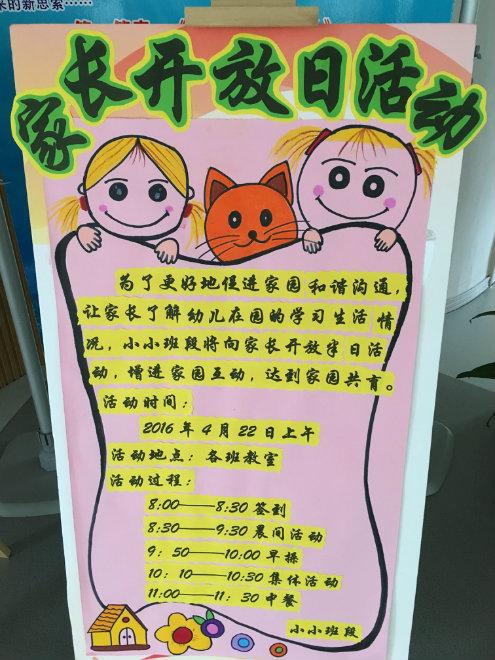 来的新思索……
家长开放日活动
为了更好地促进家园和谐沟通，
让家长了解幼儿在园的学习生活情
况，小小班段将向家长开放半日活
动，增进家园互动，达到家园共育。
活动时间：
2016 年 4 月 22 日上午
活动地点：各班教室
活动过程：
8:00——8:30 签到
8:30——9:30 晨间活动
9：50——10:00 早操
10：10——10:30 集体活动
11:00——11：30 中餐
小小班段